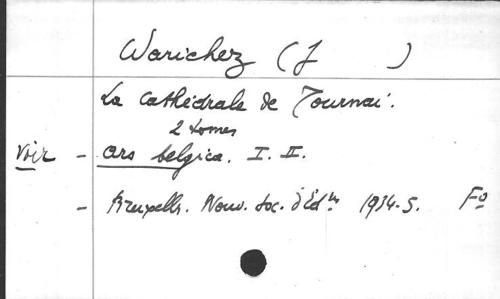 Warichez (J )
La Cathédrale de Tournai.
2 tomes
Voir - Ars belgica. I. II.
- Bruxelles. Nouv. Soc. d'Edns 1934-5. Fo